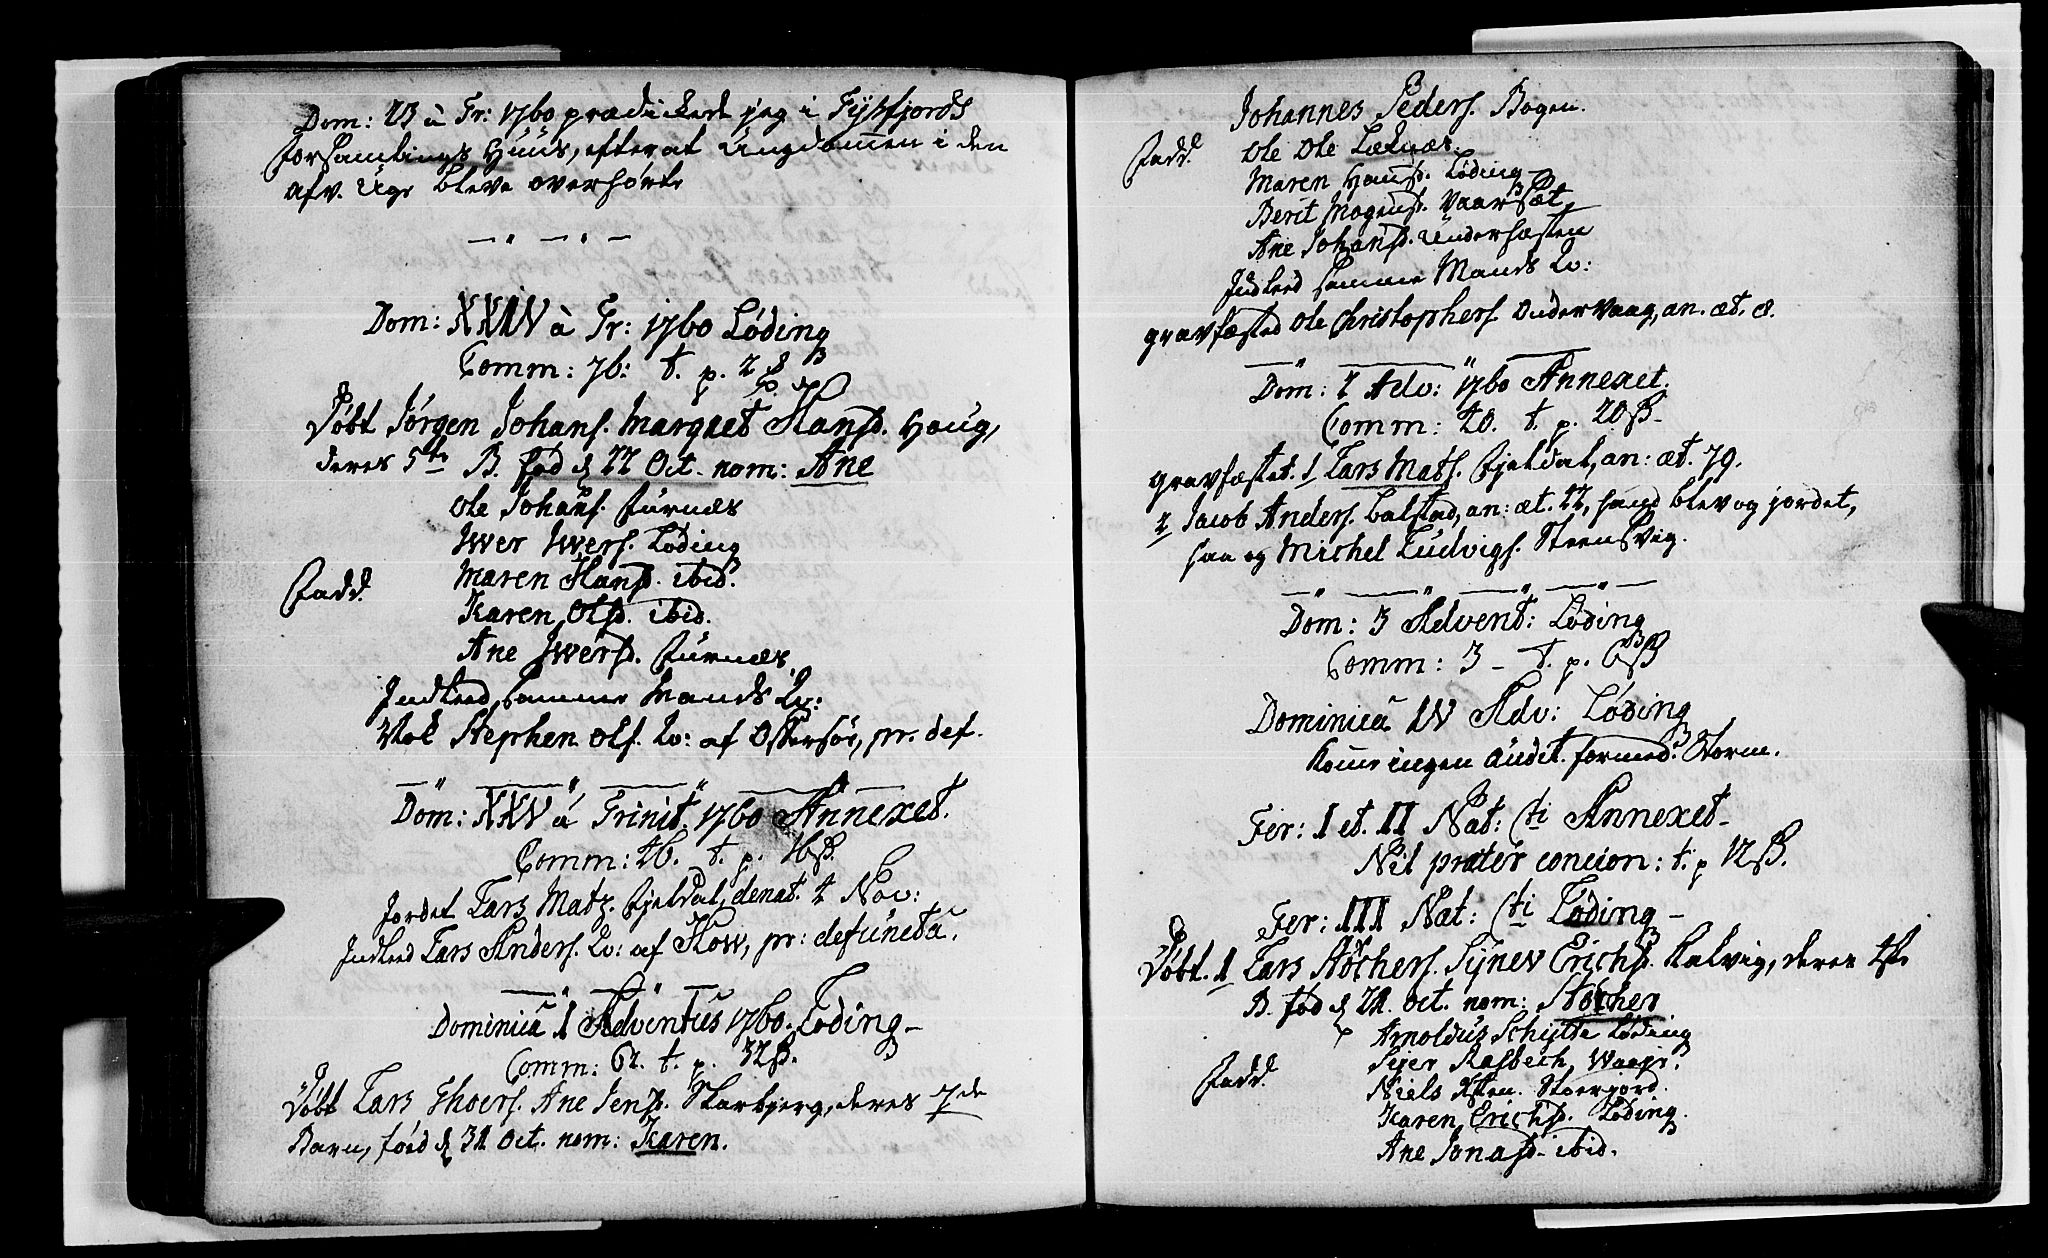 Dom: 23 à Tr: 1760 prædickede jeg i Tysfjords
Forsamlings Huus, efterat Ungdommen i den
afv. Uge bleve overhørte
Dom: XXIV à Tr: 1760 Løding
Comm: 76: t. p. 2
Døbt Jørgen Johans. Margret Hansd. Haug,
deres 5te B. fød d 22 Oct. nom: Ane
Ole Johans. Furnæs
Iwer Iwers. Løding
Fadd. Maren Hansd. ibid.
Karen Olsd. ibid.
Ane Iwersd. Furnæs
Indleed samme Mands Qv:
Nok Stephen Ols. Qv: af Offersøe, pr. def.
Dom: XXV à Trinit. 1760 Annexet.
Comm: 46. t. p. 16ß.
Jordet Lars Matz. Fjeldal, denat. 4 Nov:
Indleed Lars Anders. Qv: af Kow, pr: defuncta.
Dominica 1 Adventus 1760. Løding
Comm: 62. t. p. 32ß.
Døbt Lars Thoers. Ane Jensd. Skarbjerg, deres 7de
Barn, føed d 31 Oct. nom: Karen.
Johannes Peders. Bogen.
Fadd. Ole Ole Leknæs.
Maren Hansd. Løding
Berit Mogensd. Vaarsæt
Ane Johansd. Underhæsten
Indleed samme Mands Qv:
gravfæsted Ole Christophers. Ondervaag, an. æt. 8.
Dom: 2 Adv: 1760 Annexet.
Comm: 40. t. p. 20ß
gravfæstet. 1 Lars Mats. Fjeldal, an: æt. 79.
2 Jacob Anders. Balstad, an: æt. 22, hand blev og jordet,
saa og Michel Ludvigs. Steensvig.
Dom: 3 Advent: Løding
Comm: 3 t. p. 6ß
Dominica IV Adv: Løding
Kom ingen audit. formed. Storm.
Fer: I et. II Nat: Cti Annexet
Nil præter concion: t. p 12ß.
Fer: III Nat: Cti Løding
Døbt. 1 Lars Støchers. Synev Erichsd. Kalvig, deres 1ste
B. fød d 21. Oct. nom: Støcher
Arnoldus Schytte Løding
Fadd. Sejer Rasbech, Waage.
Niels Sten. Storjord.
Karen Erichsd. Løding.
Ane Jonasd. ibid.